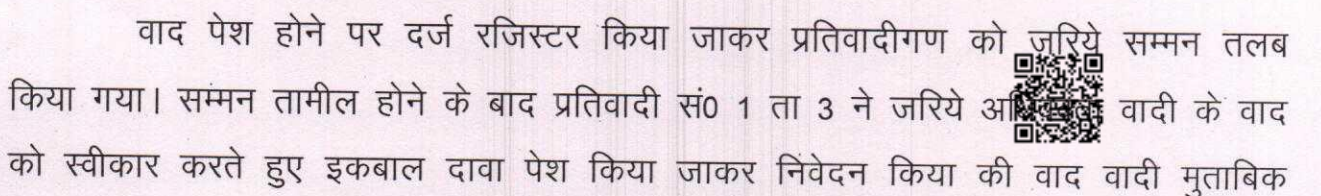 वाद पेश होने पर दर्ज रजिस्टर किया जाकर प्रतिवादीगण को जरिये सम्मन तलब
किया गया। सम्मन तामील होने के बाद प्रतिवादी सं0 1 ता 3 ने जरिये वादी के वाद
को स्वीकार करते हुए इकबाल दावा पेश किया जाकर निवेदन किया की वाद वादी मुताबिक